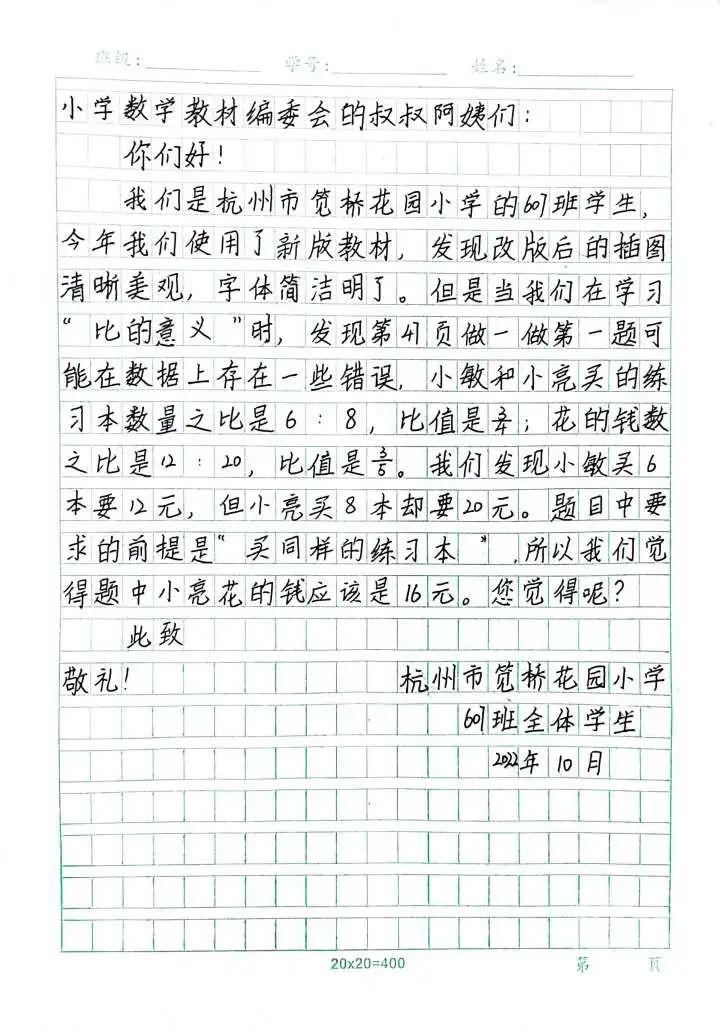 班级: 学号: 姓名:
小学数学教材编委会的叔叔阿姨们：
你们好！
我们是杭州市笕桥花园小学的607班学生，
今年我们使用了新版教材，发现改版后的插图
清晰美观，字体简洁明了。但是当我们在学习
“比的意义”时，发现第41页做一做第一题可
能在数据上存在一些错误，小敏和小亮买的练
习本数量之比是6：8，比值是3/4；花的钱数
之比是12：20，比值是3/5。我们发现小敏买6
本要12元，但小亮买8本却要20元。题目中要
求的前提是“买同样的练习本”，所以我们觉
得题中小亮花的钱应该是16元。您觉得呢？
此致
敬礼！ 杭州市笕桥花园小学
607班全体学生
2022年10月
20x20=400 第 页